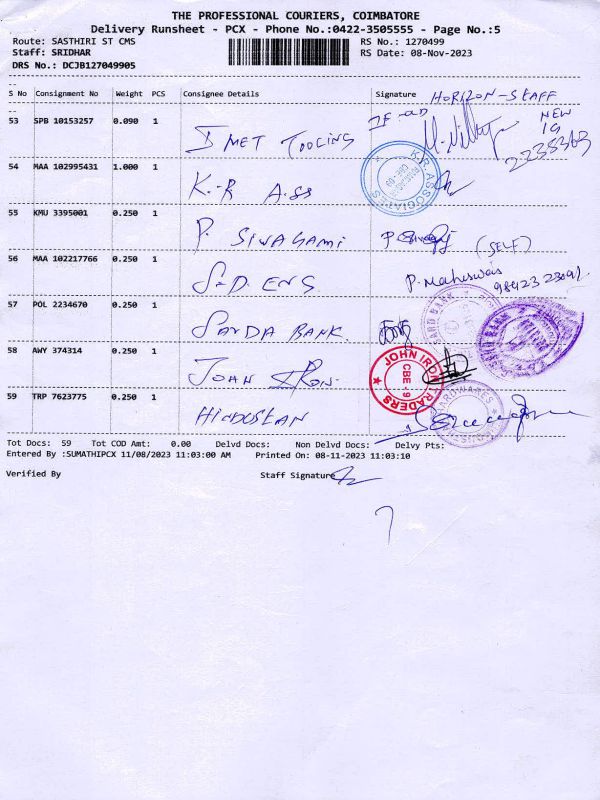 THE PROFESSIONAL COURIERS, COIMBATORE
Delivery Runsheet - PCX - Phone No.:0422-3505555 - Page No.:5
Route: SASTHIRI ST CMS RS No.: 1270499
Staff: SRIDHAR RS Date: 08-Nov-2023
DRS No.: DCJB127049905
S No Consignment No Weight PCS Consignee Details Signature HORIZON-STAFF
53 SPB 10153257 0.090 1 I MET TOOLING NEW
19
2235363
54 MAA 102995431 1.000 1 K.-R ASS K.R ASSOCIATES
55 KMU 3395001 0.250 1 P. SIWAGAMI (SELF)
56 MAA 102217766 0.250 1 S-D. ENS P. Maheswari
57 POL 2234670 0.250 1 SARDA BANK.
58 AWY 374314 0.250 1 JOHN IRON. JOHN IRON TRADERS CBE - 9
59 TRP 7623775 0.250 1 HINDUSTAN
Tot Docs: 59 Tot COD Amt: 0.00 Delvd Docs: Non Delvd Docs: Delvy Pts:
Entered By :SUMATHIPCX 11/08/2023 11:03:00 AM Printed On: 08-11-2023 11:03:10
Verified By Staff Signature